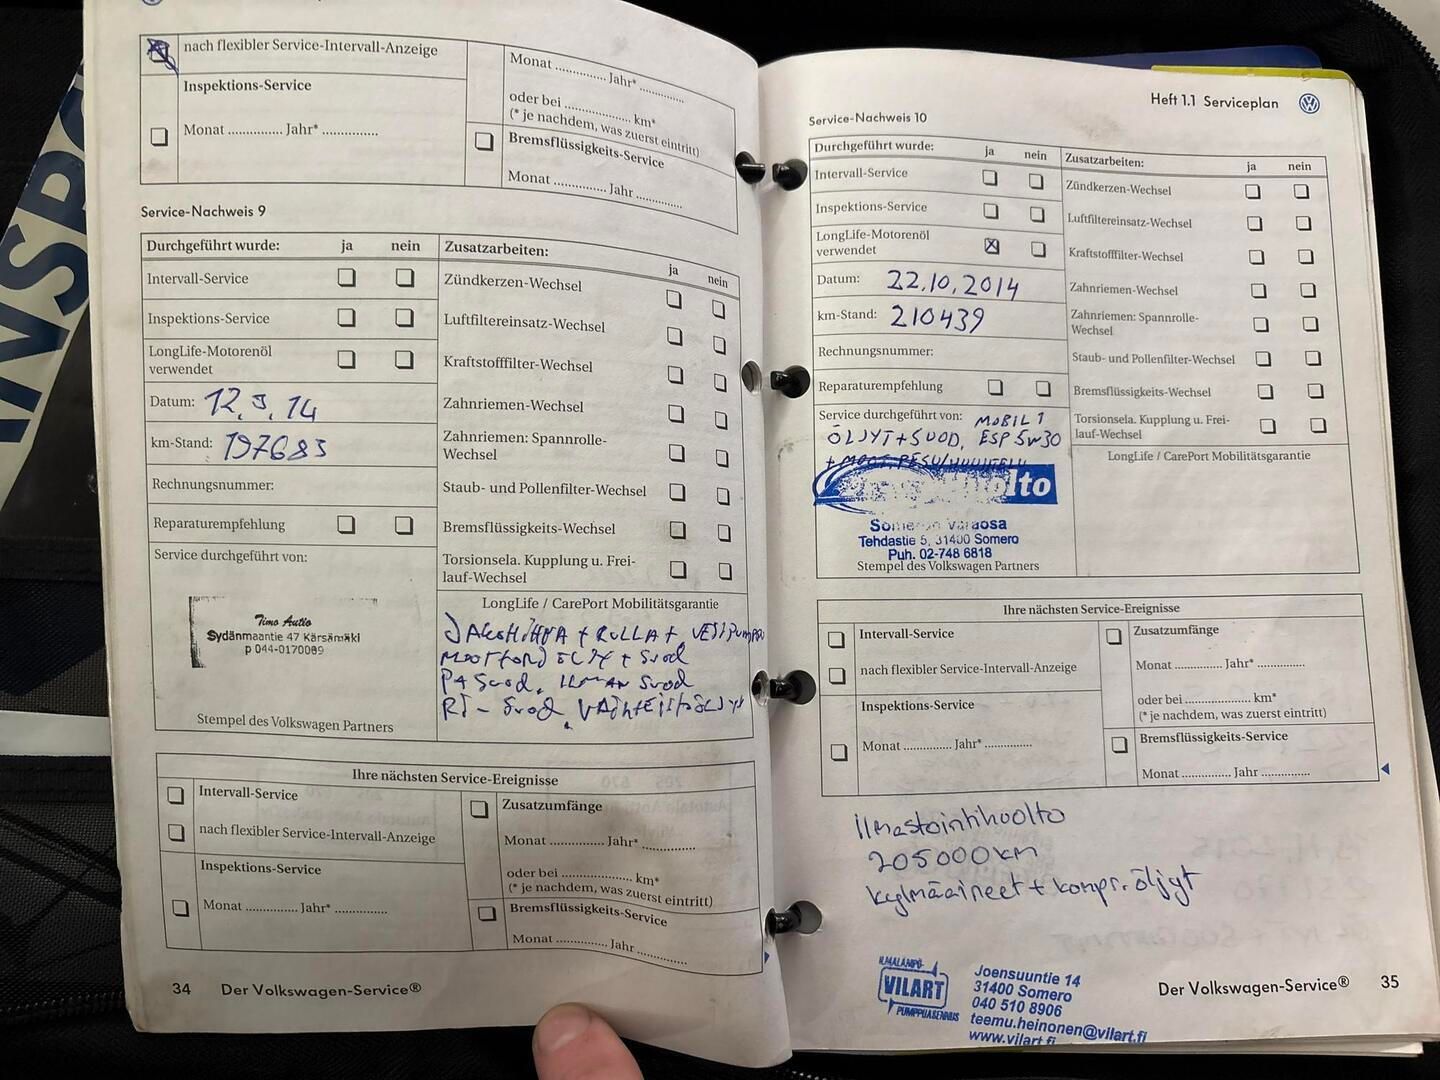 nach flexibler Service-Intervall-Anzeige
Inspektions-Service
Monat ............... Jahr* ...............
Monat .............. Jahr* ............
oder bei .................. km*
(* je nachdem, was zuerst eintritt)
Bremsflüssigkeits-Service
Monat .............. Jahr ............
Service-Nachweis 9
Durchgeführt wurde: ja nein
Intervall-Service
Inspektions-Service
LongLife-Motorenöl
verwendet
Datum: 12.9.14
km-Stand: 197683
Rechnungsnummer:
Reparaturempfehlung
Service durchgeführt von:
Timo Autio
Sydänmaantie 47 Kärsämäki
p 044-0170089
Stempel des Volkswagen Partners
Zusatzarbeiten: ja nein
Zündkerzen-Wechsel
Luftfiltereinsatz-Wechsel
Kraftstofffilter-Wechsel
Zahnriemen-Wechsel
Zahnriemen: Spannrolle-
Wechsel
Staub- und Pollenfilter-Wechsel
Bremsflüssigkeits-Wechsel
Torsionsela. Kupplung u. Frei-
lauf-Wechsel
LongLife / CarePort Mobilitätsgarantie
JAKOHIHNA + RULLAT, VESIPUMPPU
MOOTTORI ÖLJY + Suod
PA Suod, ILMAN Suod
RI - Suod, VAIHTEISTOÖLJYT
Ihre nächsten Service-Ereignisse
Intervall-Service
nach flexibler Service-Intervall-Anzeige
Inspektions-Service
Monat ............... Jahr* ...............
Zusatzumfänge
Monat .............. Jahr* ............
oder bei .................. km*
(* je nachdem, was zuerst eintritt)
Bremsflüssigkeits-Service
Monat .............. Jahr ............
34 Der Volkswagen-Service®
Heft 1.1 Serviceplan
Service-Nachweis 10
Durchgeführt wurde: ja nein
Intervall-Service
Inspektions-Service
LongLife-Motorenöl
verwendet
Datum: 22.10.2014
km-Stand: 210439
Rechnungsnummer:
Reparaturempfehlung
Service durchgeführt von: MOBIL 1
ÖLJYT + SUOD, ESP 5W30
+ MOOT.PESU
huolto
Someron Varaosa
Tehdastie 5, 31400 Somero
Puh. 02-748 6818
Stempel des Volkswagen Partners
Zusatzarbeiten: ja nein
Zündkerzen-Wechsel
Luftfiltereinsatz-Wechsel
Kraftstofffilter-Wechsel
Zahnriemen-Wechsel
Zahnriemen: Spannrolle-
Wechsel
Staub- und Pollenfilter-Wechsel
Bremsflüssigkeits-Wechsel
Torsionsela. Kupplung u. Frei-
lauf-Wechsel
LongLife / CarePort Mobilitätsgarantie
Ihre nächsten Service-Ereignisse
Intervall-Service
nach flexibler Service-Intervall-Anzeige
Inspektions-Service
Monat ............... Jahr* ...............
Zusatzumfänge
Monat .............. Jahr* ............
oder bei .................. km*
(* je nachdem, was zuerst eintritt)
Bremsflüssigkeits-Service
Monat .............. Jahr ............
ilmastointihuolto
205000km
kylmäaineet + kompr. öljyt
ILMALÄMPÖ-
VILART
PUMPPUASENNUS
Joensuuntie 14
31400 Somero
040 510 8906
teemu.heinonen@vilart.fi
www.vilart.fi
Der Volkswagen-Service® 35